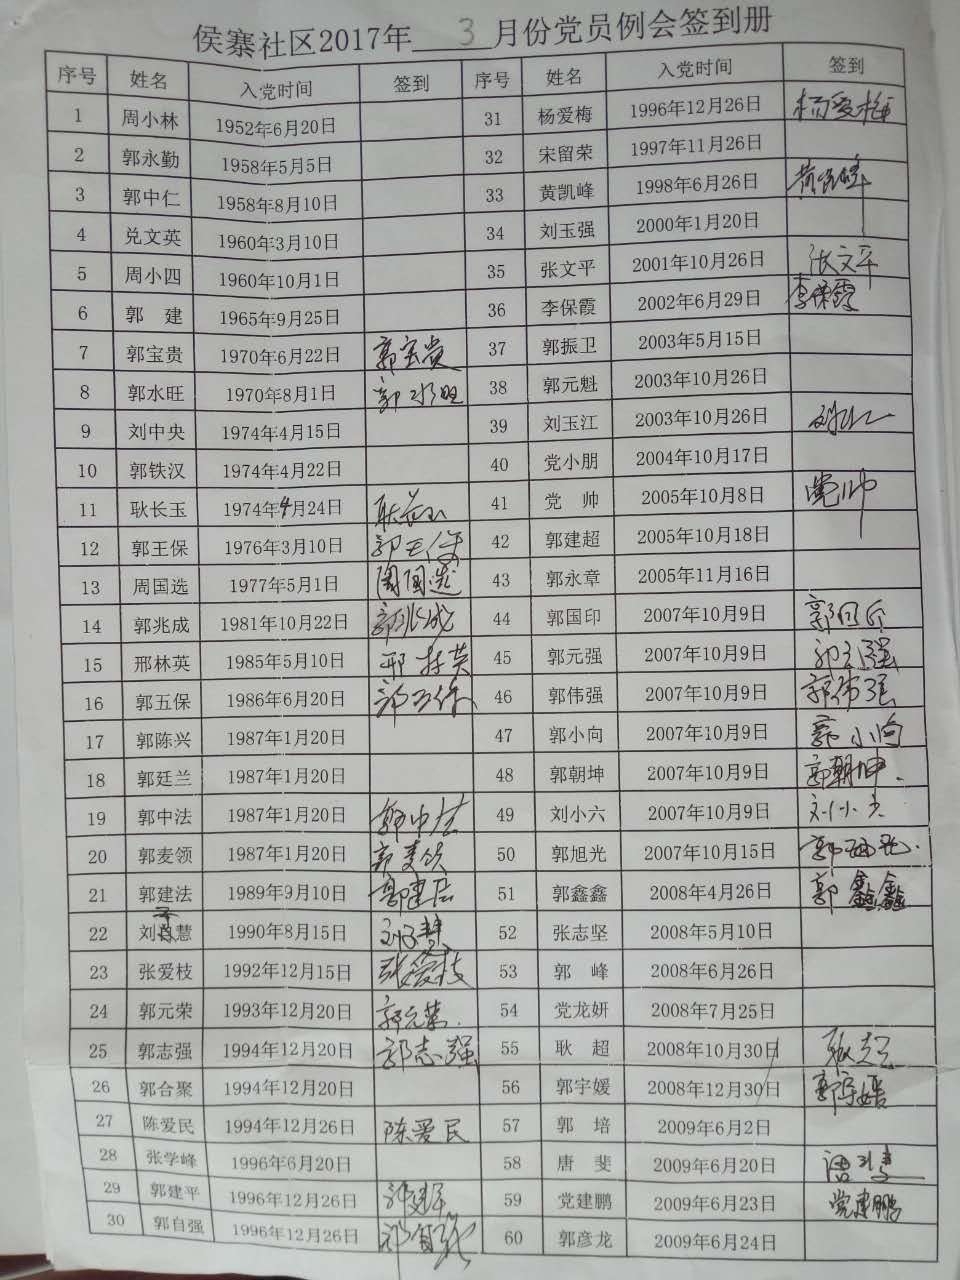 侯寨社区2017年 3 月份党员例会签到册
序号 姓名 入党时间 签到 序号 姓名 入党时间 签到
1 周小林 1952年6月20日 31 杨爱梅 1996年12月26日 杨爱梅
2 郭永勤 1958年5月5日 32 宋留荣 1997年11月26日
3 郭中仁 1958年8月10日 33 黄凯峰 1998年6月26日 黄凯峰
4 兑文英 1960年3月10日 34 刘玉强 2000年1月20日
5 周小四 1960年10月1日 35 张文平 2001年10月26日 张文平
6 郭 建 1965年9月25日 36 李保霞 2002年6月29日 李保霞
7 郭宝贵 1970年6月22日 郭宝贵 37 郭振卫 2003年5月15日
8 郭水旺 1970年8月1日 郭水旺 38 郭元魁 2003年10月26日
9 刘中央 1974年4月15日 39 刘玉江 2003年10月26日
10 郭铁汉 1974年4月22日 40 党小朋 2004年10月17日
11 耿长玉 1974年4月24日 耿长玉 41 党 帅 2005年10月8日 党帅
12 郭王保 1976年3月10日 郭王保 42 郭建超 2005年10月18日
13 周国选 1977年5月1日 周国选 43 郭永章 2005年11月16日
14 郭兆成 1981年10月22日 郭兆成 44 郭国印 2007年10月9日 郭国印
15 邢林英 1985年5月10日 邢林英 45 郭元强 2007年10月9日 郭元强
16 郭五保 1986年6月20日 郭五保 46 郭伟强 2007年10月9日 郭伟强
17 郭陈兴 1987年1月20日 47 郭小向 2007年10月9日 郭小向
18 郭廷兰 1987年1月20日 48 郭朝坤 2007年10月9日 郭朝坤
19 郭中法 1987年1月20日 郭中法 49 刘小六 2007年10月9日 刘小六
20 郭麦领 1987年1月20日 郭麦领 50 郭旭光 2007年10月15日 郭旭光
21 郭建法 1989年9月10日 郭建法 51 郭鑫鑫 2008年4月26日 郭鑫鑫
22 刘子慧 1990年8月15日 刘子慧 52 张志坚 2008年5月10日
23 张爱枝 1992年12月15日 张爱枝 53 郭 峰 2008年6月26日
24 郭元荣 1993年12月20日 郭元荣 54 党龙妍 2008年7月25日
25 郭志强 1994年12月20日 郭志强 55 耿 超 2008年10月30日 耿超
26 郭合聚 1994年12月20日 56 郭宇媛 2008年12月30日 郭宇媛
27 陈爱民 1994年12月26日 陈爱民 57 郭 培 2009年6月2日
28 张学峰 1996年6月20日 58 唐 斐 2009年6月20日
29 郭建平 1996年12月26日 郭建平 59 党建鹏 2009年6月23日 党建鹏
30 郭自强 1996年12月26日 郭自强 60 郭彦龙 2009年6月24日